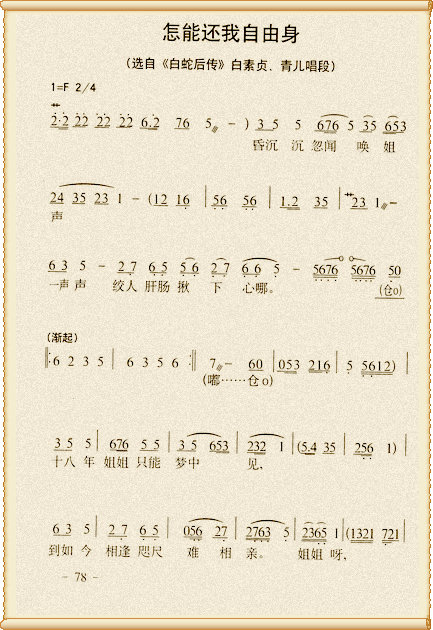 怎能还我自由身
(选自《白蛇后传》白素贞、青儿唱段)
1=F 2/4
2·2 22 22 22 6.2 76 5 - ) 3 5 5 676 5 35 653
昏沉 沉 忽闻 唤 姐
24 35 23 1 - (12 16 | 56 56 | 1.2 35 | 23 1 -
声
6 3 5 - 2 7 6 5 5 6 2 7 6 6 5 - 5676 5676 50
一声 声 绞人 肝肠 揪 下 心哪。 (仓o)
(渐起)
‖: 6 2 3 5 | 6 3 5 6 :‖ 7 - 60 | 053 216 | 5 5612) |
(嘟……仓o)
3 5 5 | 676 5 5 | 3 5 653 | 232 1 | (5.4 35 | 256 1) |
十八 年 姐姐 只能 梦中 见,
6 3 5 | 2 7 6 5 | 056 27 | 2763 5 | 2365 1 | (1321 721 |
到如 今 相逢 咫尺 难 相 亲。 姐姐 呀,
- 78 -